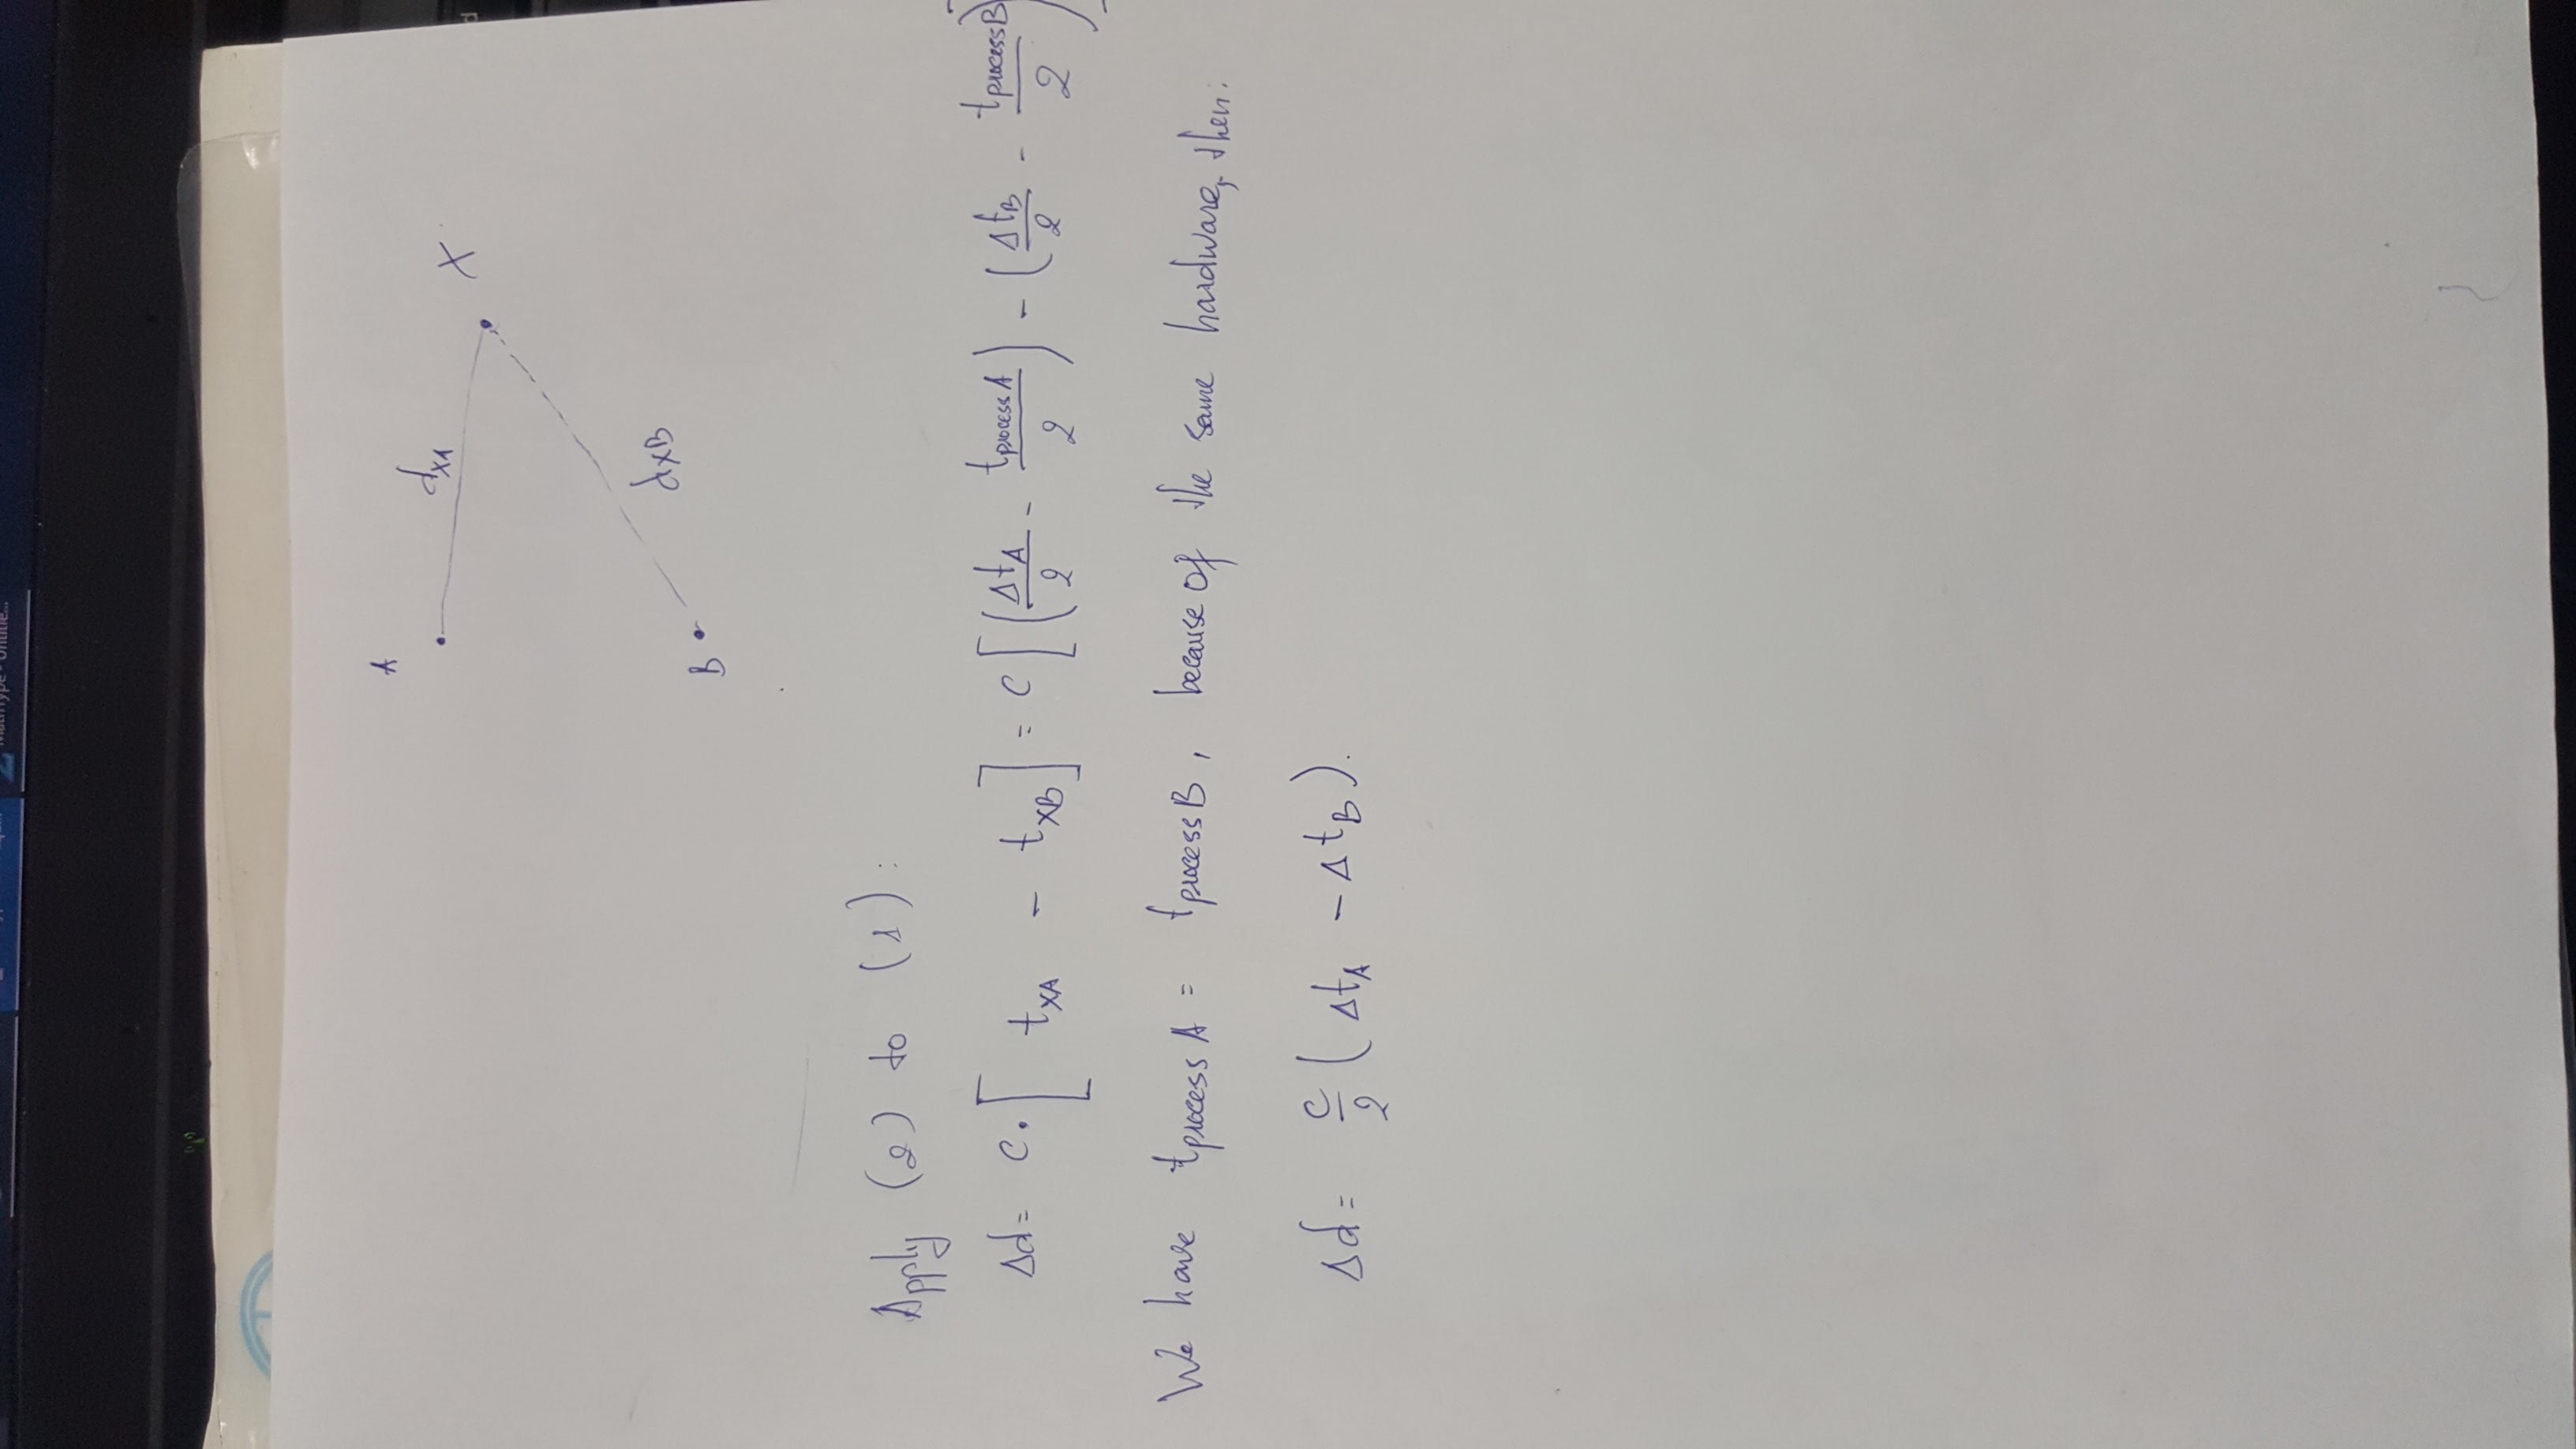 MathType - Untitle...
A
d_XA
X
d_XB
B
Apply (2) to (1):
Δd = c. [ t_XA - t_XB ] = c [ ( Δt_A / 2 - t_process A / 2 ) - ( Δt_B / 2 - t_process B / 2 ) ]
We have t_process A = t_process B, because of the same hardware, then:
Δd = c / 2 ( Δt_A - Δt_B ).